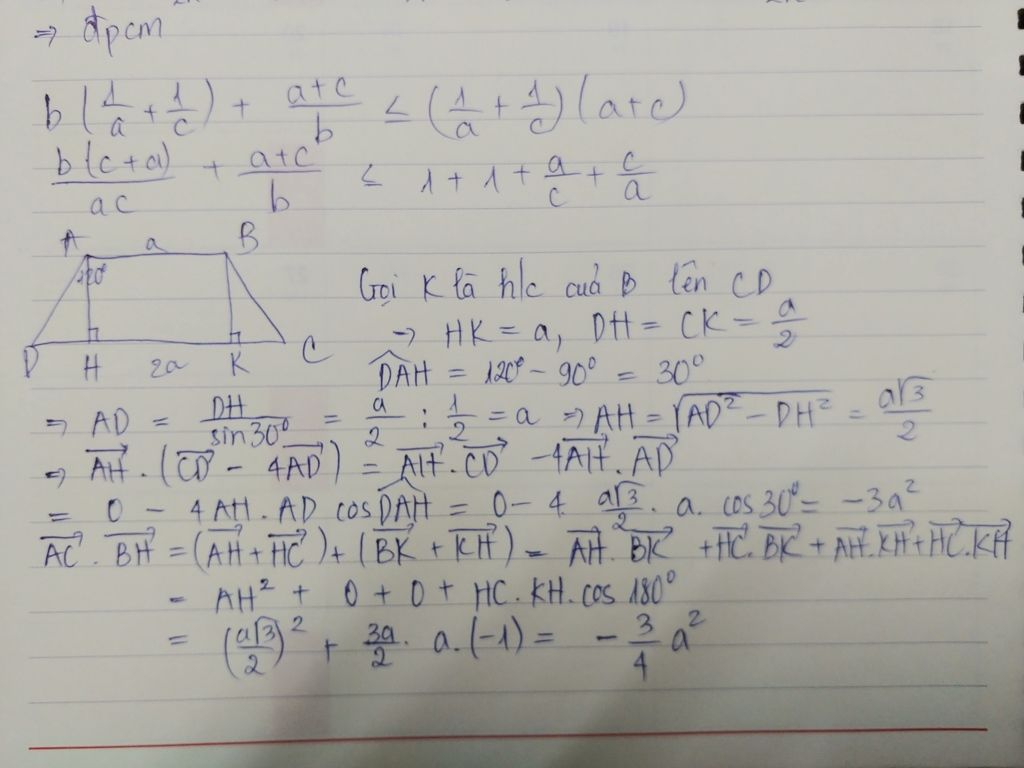 ⇒ đpcm
b(1/a + 1/c) + (a+c)/b ≤ (1/a + 1/c)(a+c)
b(c+a)/ac + (a+c)/b ≤ 1 + 1 + a/c + c/a
A a B
120°
D H 2a K C
Gọi K là h/c của B lên CD
→ HK = a, DH = CK = a/2
\widehat{DAH} = 120° - 90° = 30°
⇒ AD = DH/sin30° = a/2 : 1/2 = a ⇒ AH = √(AD² - DH²) = a√3/2
⇒ \overrightarrow{AH} . (\overrightarrow{CD} - 4\overrightarrow{AD}) = \overrightarrow{AH}.\overrightarrow{CD} - 4\overrightarrow{AH}.\overrightarrow{AD}
= 0 - 4AH.AD cos\widehat{DAH} = 0 - 4 a√3/2 . a. cos30° = -3a²
\overrightarrow{AC} . \overrightarrow{BH} = (\overrightarrow{AH} + \overrightarrow{HC}) + (\overrightarrow{BK} + \overrightarrow{KH}) = \overrightarrow{AH}.\overrightarrow{BK} + \overrightarrow{HC}.\overrightarrow{BK} + \overrightarrow{AH}.\overrightarrow{KH} + \overrightarrow{HC}.\overrightarrow{KH}
= AH² + 0 + 0 + HC.KH.cos 180°
= (a√3/2)² + 3a/2 . a.(-1) = -3/4 a²